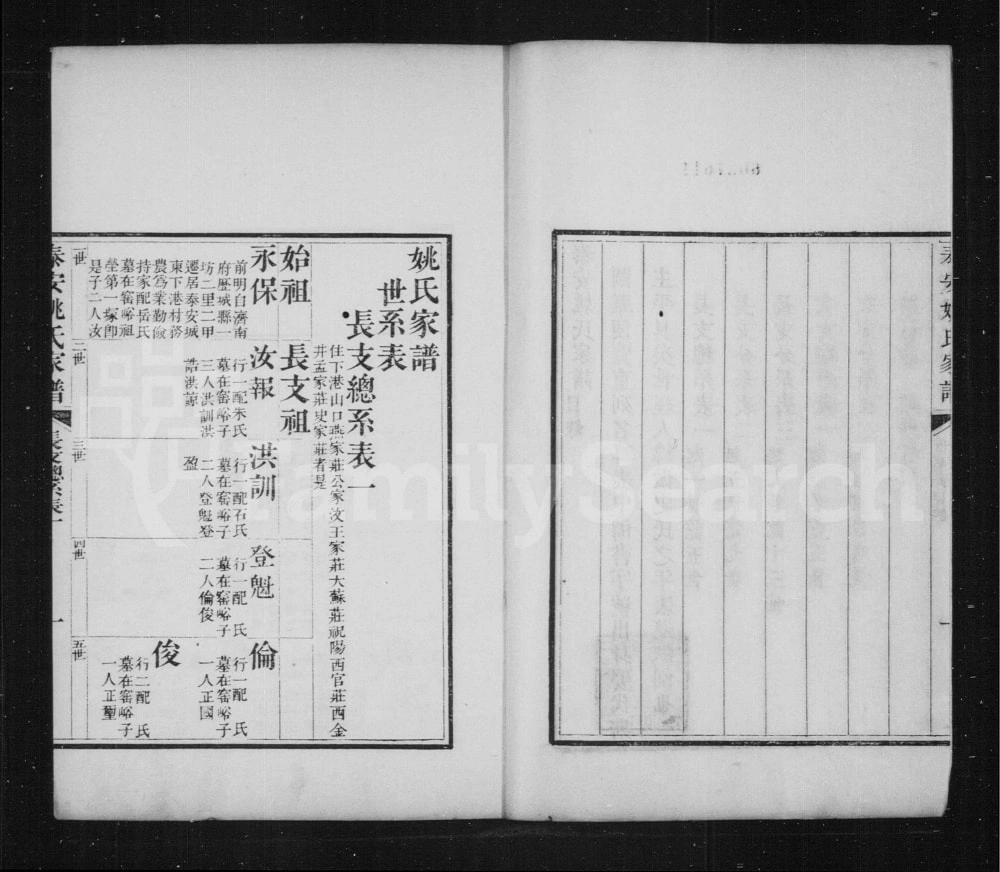 姚氏家譜
世系表
長支總系表一
住下港山口燕家莊公家汶王家莊大蘇莊祝陽西官莊西金
井孟家莊史家莊者是
始祖
永保
前明自濟南
府歷城縣一
坊二里二甲
遷居泰安城
東下港村務
農為業勤儉
持家配岳氏
墓在窰峪祖
塋第一塚即
是子二人汝
長支祖
汝報
行一配朱氏
墓在窰峪子
三人洪訓洪
誥洪諒
洪訓
行一配石氏
墓在窰峪子
二人登魁登
盈
登魁
行一配 氏
墓在窰峪子
二人倫俊
倫
行一配 氏
墓在窰峪子
一人正國
俊
行二配 氏
墓在窰峪子
一人正
一世
二世
三世
四世
五世
泰安姚氏家譜
長支總系表一
一
泰安姚氏家譜
一
FamilySearch